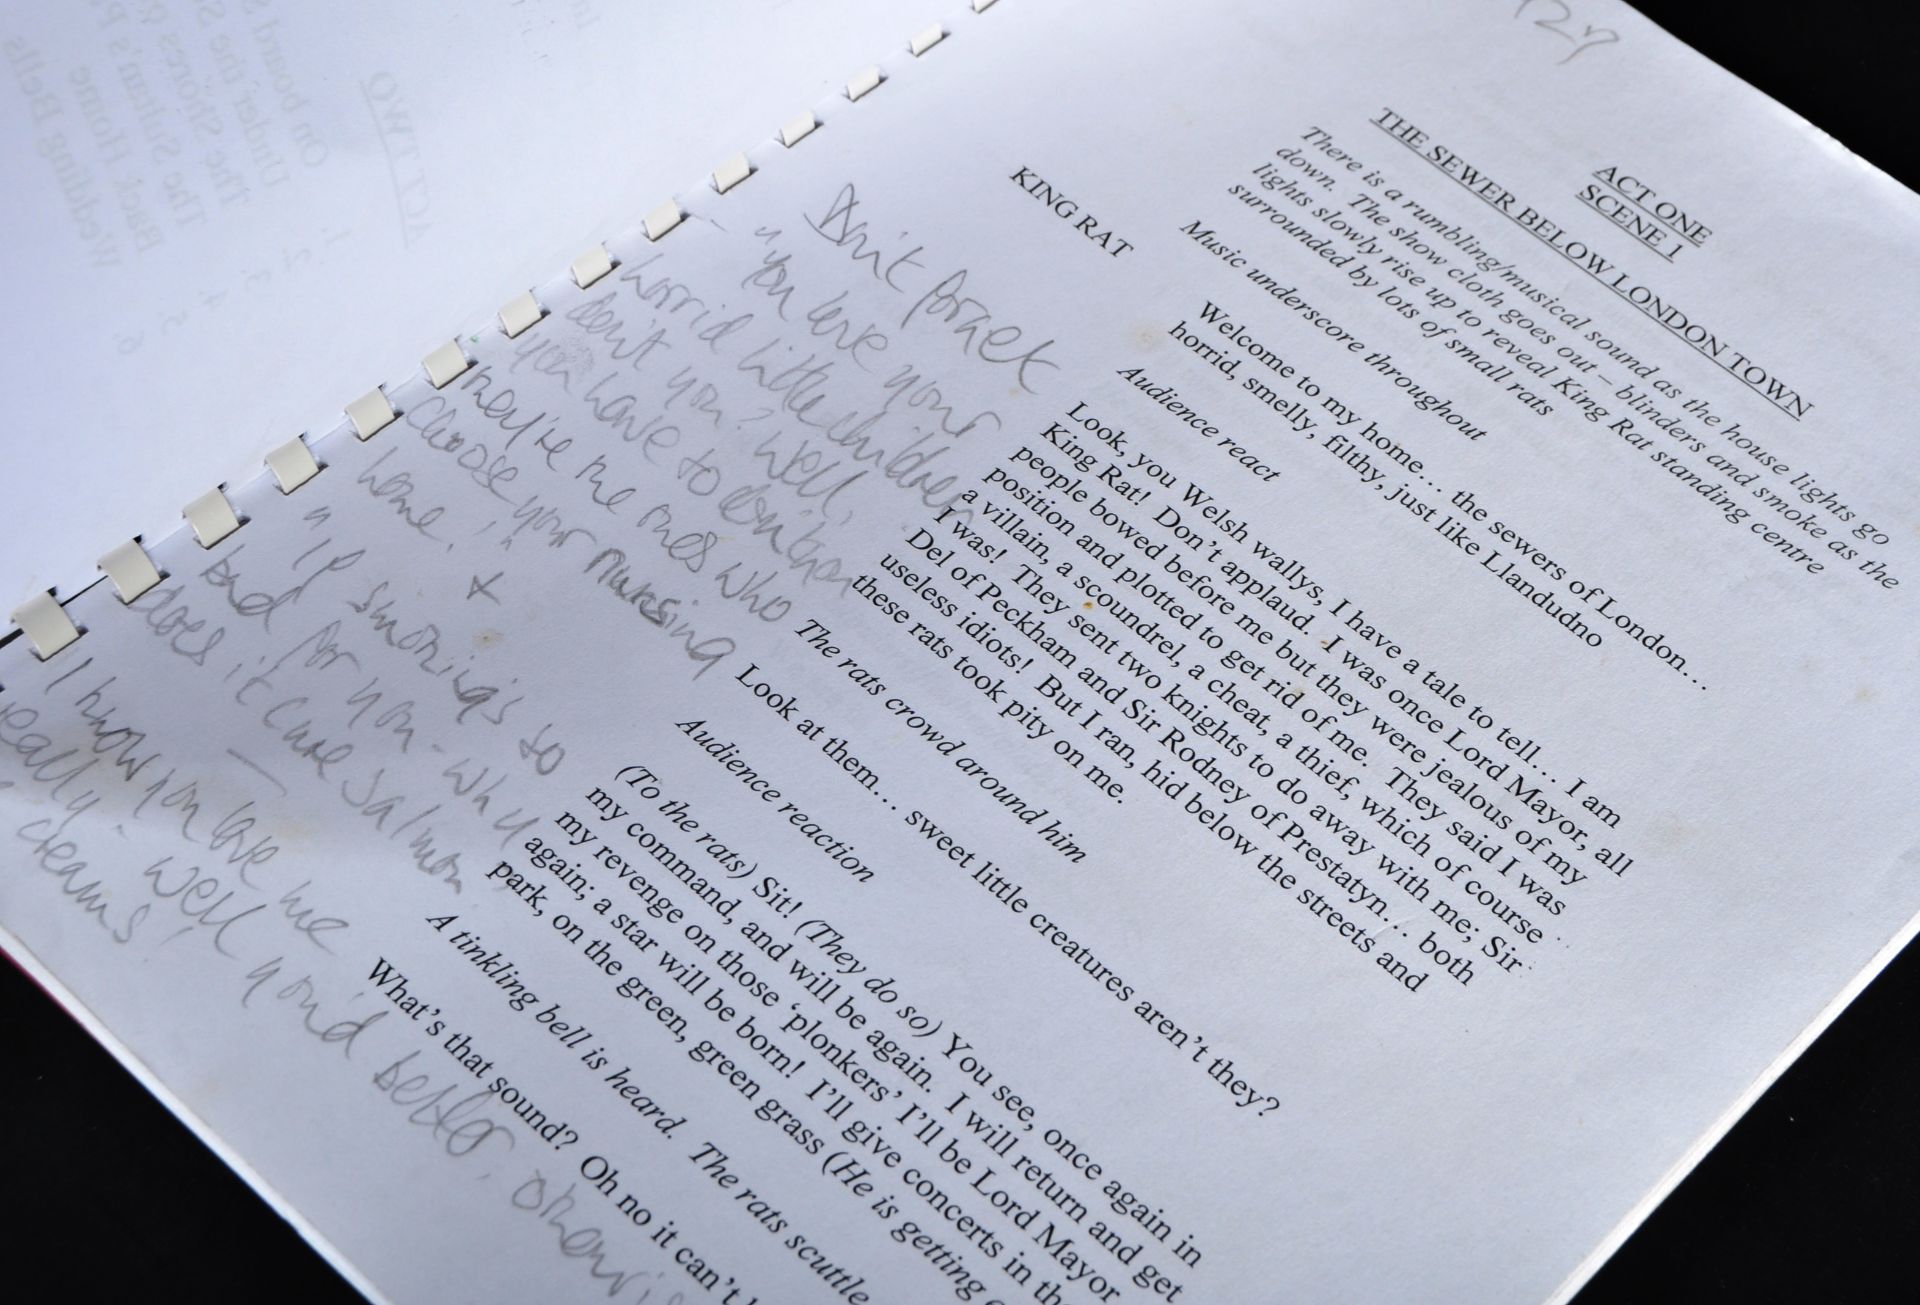 ACT TWO
1. On board
2. Under the S
3. The Shores
4. The Sultan's P
5. Back Home
6. Wedding Bells
ACT ONE
SCENE 1
THE SEWER BELOW LONDON TOWN
There is a rumbling/musical sound as the house lights go
down. The show cloth goes out – blinders and smoke as the
lights slowly rise up to reveal King Rat standing centre
surrounded by lots of small rats
Music underscore throughout
KING RAT
Welcome to my home… the sewers of London…
horrid, smelly, filthy, just like Llandudno
Audience react
Look, you Welsh wallys, I have a tale to tell… I am
King Rat! Don't applaud. I was once Lord Mayor, all
people bowed before me but they were jealous of my
position and plotted to get rid of me. They said I was
a villain, a scoundrel, a cheat, a thief, which of course
I was! They sent two knights to do away with me; Sir
Del of Peckham and Sir Rodney of Prestatyn… both
useless idiots! But I ran, hid below the streets and
these rats took pity on me.
The rats crowd around him
Look at them… sweet little creatures aren't they?
Audience reaction
(To the rats) Sit! (They do so) You see, once again in
my command, and will be again. I will return and get
my revenge on those 'plonkers' I'll be Lord Mayor
again; a star will be born! I'll give concerts in the
park, on the green, green grass (He is getting
A tinkling bell is heard. The rats scuttle
What's that sound? Oh no it can't
Don't forget
"you love your
horrid little children
don't you? Well,
you have to
they're the ones who
choose your nursing
home!" +
"If smoking's so
bad for you - why
does it cure salmon
I know you love me
really - well you'd better,
creams